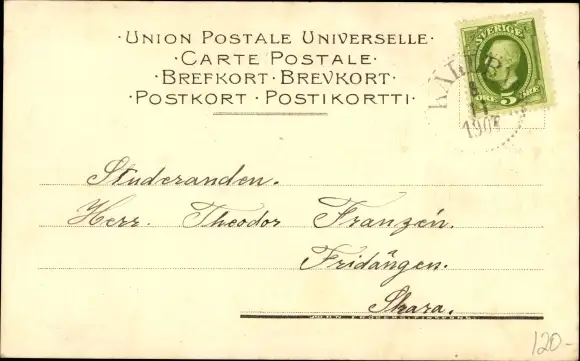 ·UNION POSTALE UNIVERSELLE·
·CARTE POSTALE·
·BREFKORT·BREVKORT·
·POSTKORT·POSTIKORTTI·
SVERIGE
ÖRE 5 ÖRE
KÄLLBY
Studeranden.
Herr. Theodor Franzén.
Fridängen.
Skara.
120-